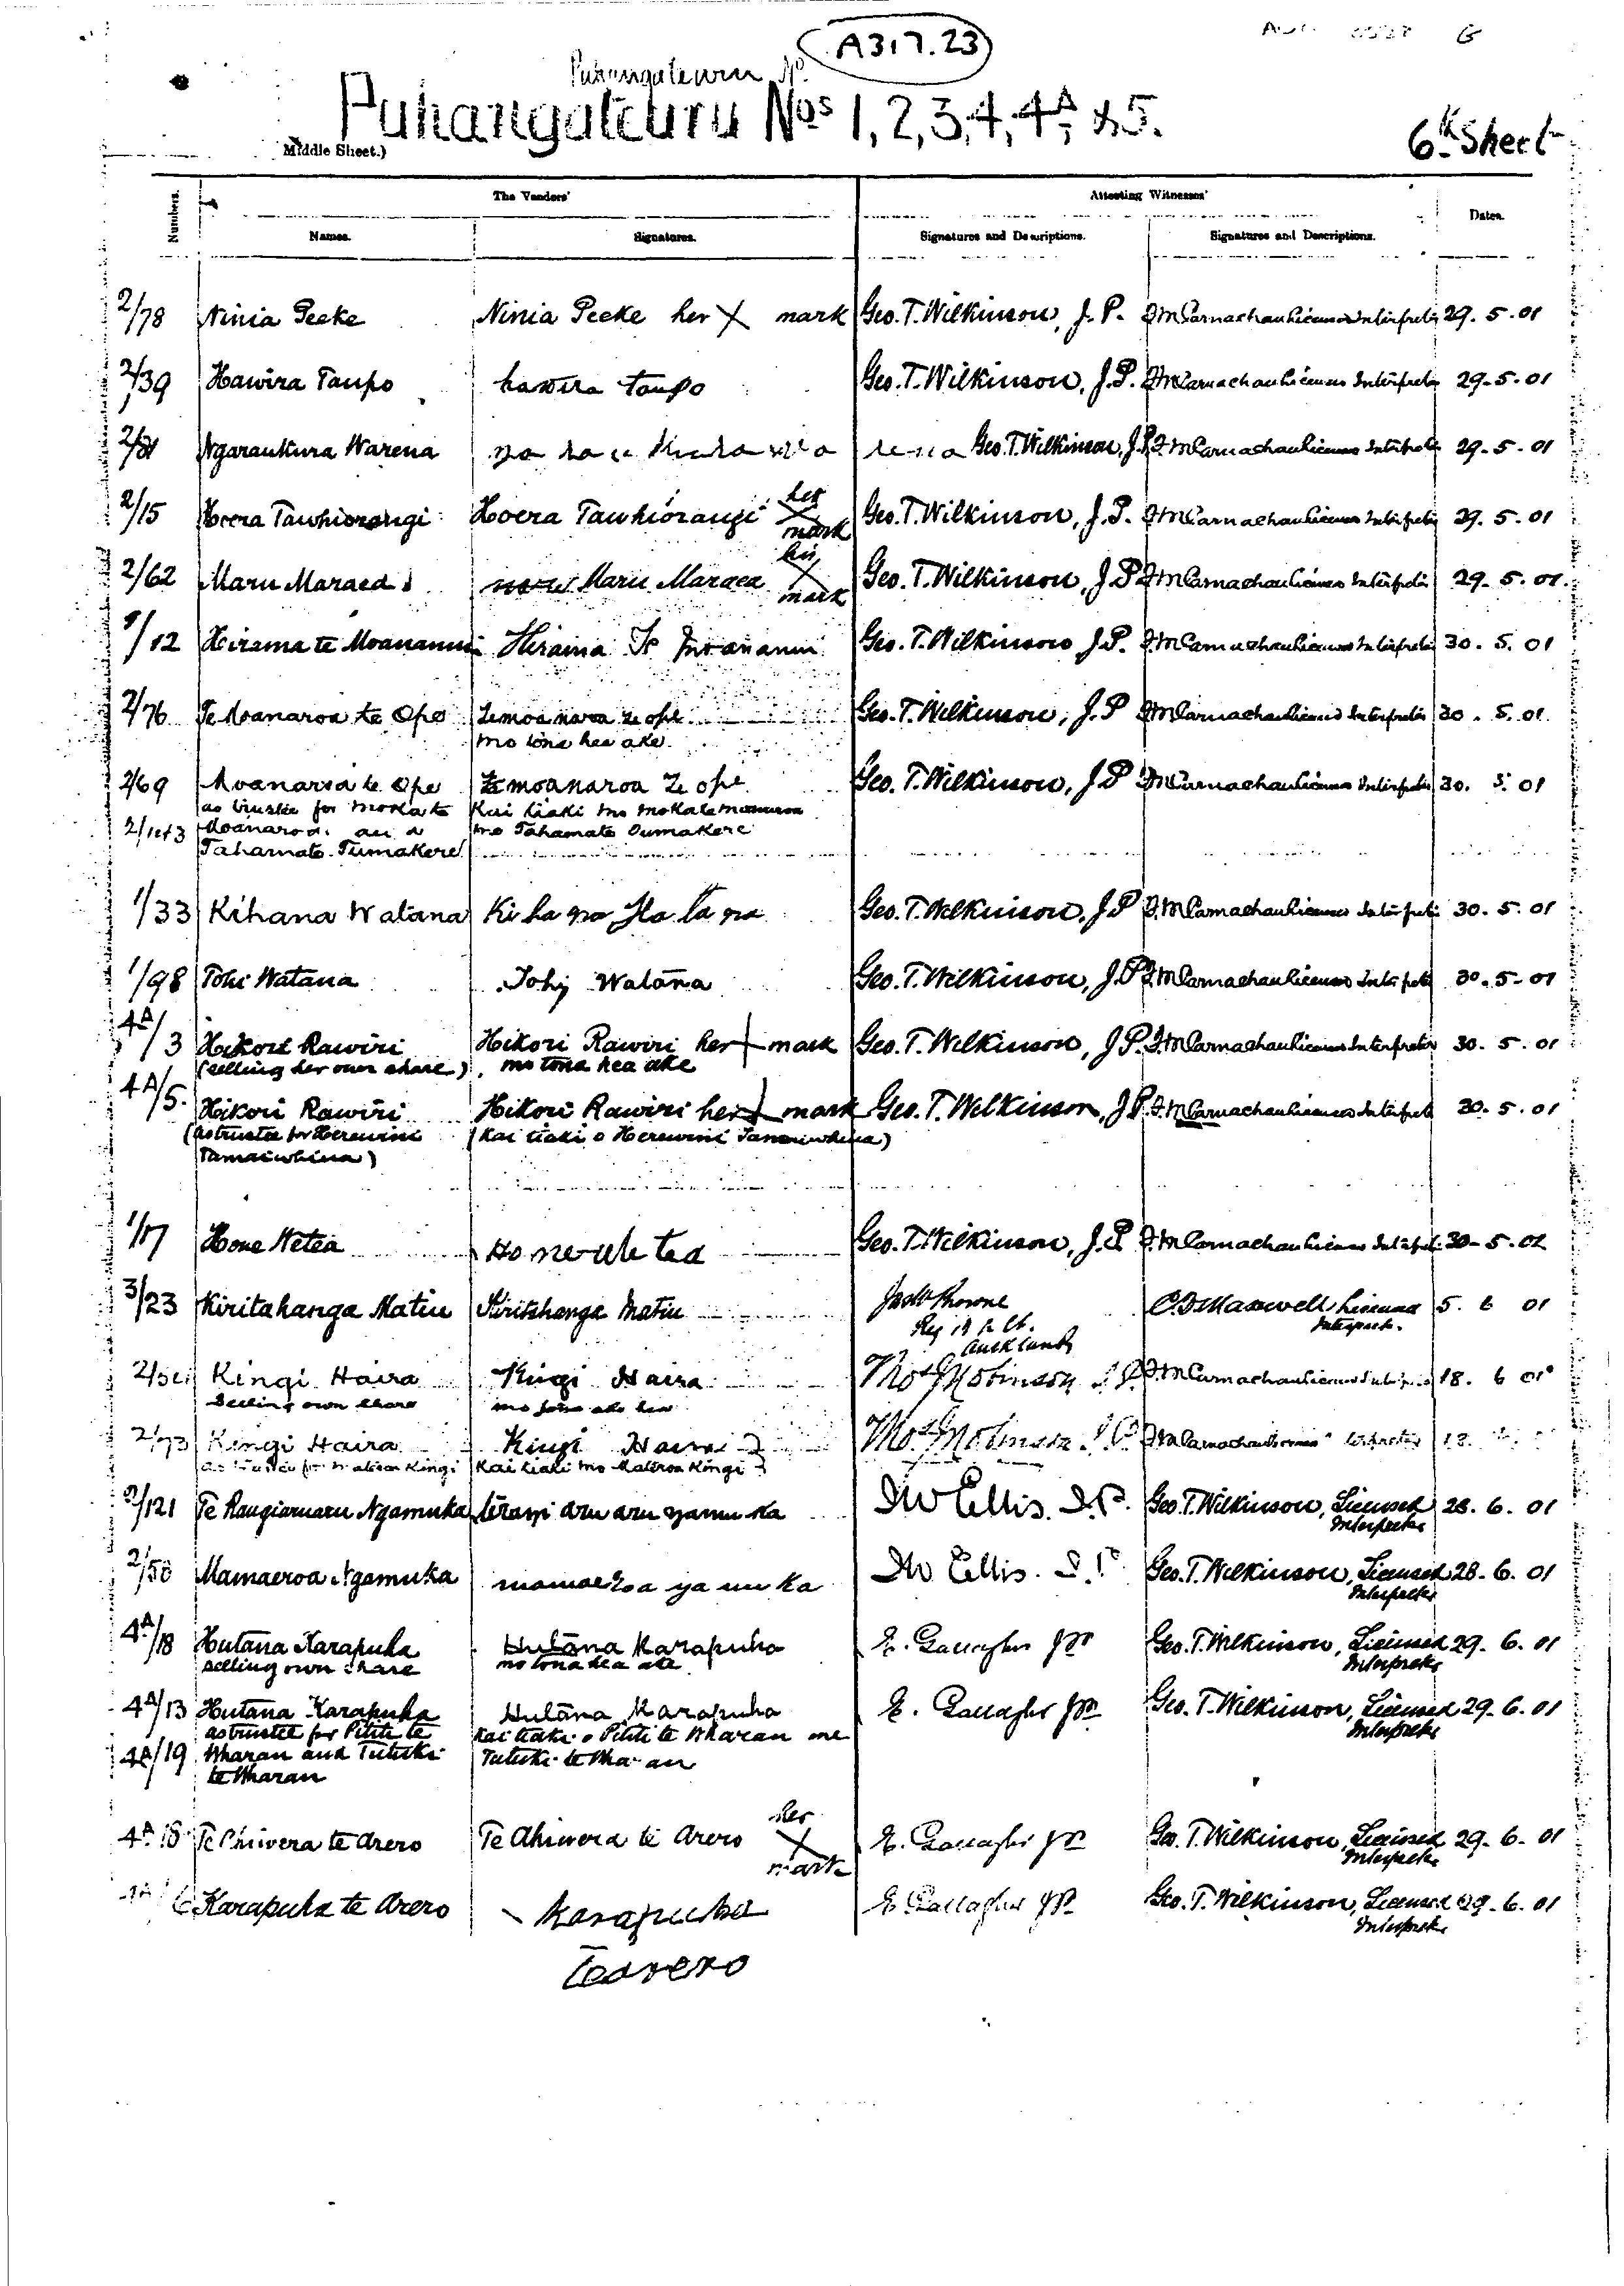 A317.23
Puhangateuru Nos 1, 2, 3, 4, 4A, & 5.
6th Sheet
Middle Sheet.)
Numbers. The Vendors' Attesting Witnesses' Dates.
Names. Signatures. Signatures and Descriptions. Signatures and Descriptions.
2/78 Ninia Peeke Ninia Peeke her X mark Geo. T. Wilkinson, J.P. Licensed Interpreter 29.5.01
2/39 Hawira Taupo hawira taupo Geo. T. Wilkinson, J.P. Licensed Interpreter 29.5.01
Ngaraukura Warena Geo. T. Wilkinson, J.P. Licensed Interpreter 29.5.01
2/15 Hoera Tawhiorangi Hoera Tawhiorangi her X mark Geo. T. Wilkinson, J.P. Licensed Interpreter 29.5.01
2/62 Maru Maraea Maru Maraea his X mark Geo. T. Wilkinson, J.P. Licensed Interpreter 29.5.01.
/12 Hirama te Moananui Hirama Te Moananui Geo. T. Wilkinson J.P. Licensed Interpreter 30.5.01
2/76 Te Moanaroa te Ope Temoanaroa te ope Geo. T. Wilkinson, J.P Licensed Interpreter 30.5.01.
mo tona hea ake
2/69 Moanaroa te Ope Temoanaroa Te ope Geo. T. Wilkinson, J.P Licensed Interpreter 30.5.01
as trustee for Moka te Kai tiaki mo
Moanaroa and mo Tahamata Tumakere
Tahamata Tumakere
1/33 Kihana Watana Ki ha na Wa ta na Geo. T. Wilkinson, J.P Licensed Interpreter 30.5.01
1/98 Tohi Watana Tohi Watana Geo. T. Wilkinson, J.P. Licensed Interpreter 30.5-01
4A/3 Hikori Rawiri Hikori Rawiri her X mark Geo. T. Wilkinson, J.P. Licensed Interpreter 30.5.01
(selling her own share) mo tona hea ake
4A/5. Hikori Rawiri Hikori Rawiri her X mark Geo. T. Wilkinson, J.P. Licensed Interpreter 30.5.01
(as trustee for Herewini (Kai tiaki o Herewini Tamaiwhina)
Tamaiwhina)
1/17 Hone Wetea Geo. T. Wilkinson, J.P. Licensed 30-5.01
3/23 Kiritahanga Matiu Kiritahanga Matiu Maxwell Licensed 5.6 01
Interpreter.
Auckland
Kingi Haira Kingi Haira Licensed 18.6 01
Selling own share mo tona ake hea
2/73 Kingi Haira Kingi Haira
Kai tiaki mo Kingi
/121 Te Rangiaruaru Ngamuka terangi aru aru ngamu ka Ellis. J.P. Geo. T. Wilkinson, Licensed 28.6.01
Interpreter
2/50 Mamaeroa Ngamuka mamaeroa ga mu ka Ellis. J.P. Geo. T. Wilkinson, Licensed 28-6.01
Interpreter
4A/18 Hutana Karapuha Hutana Karapuha E. Gallagher JP Geo. T. Wilkinson, Licensed 29-6.01
selling own share mo tona hea ake Interpreter
4A/13 Hutana Karapuha Hutana Karapuha E. Gallagher JP Geo. T. Wilkinson, Licensed 29-6.01
as trustee for Pititi te Kai tiaki o Pititi te Wharau me Interpreter
4A/19 Wharau and Tutuki Tutuki te Wharau
te Wharau
Te Ahiwera te Arero Te Ahiwera te Arero her X mark E. Gallagher JP Geo. T. Wilkinson, Licensed 29-6.01
Interpreter
Karapuha te Arero Karapuha E Gallagher JP Geo. T. Wilkinson, Licensed 29-6.01
Interpreter
Tearero